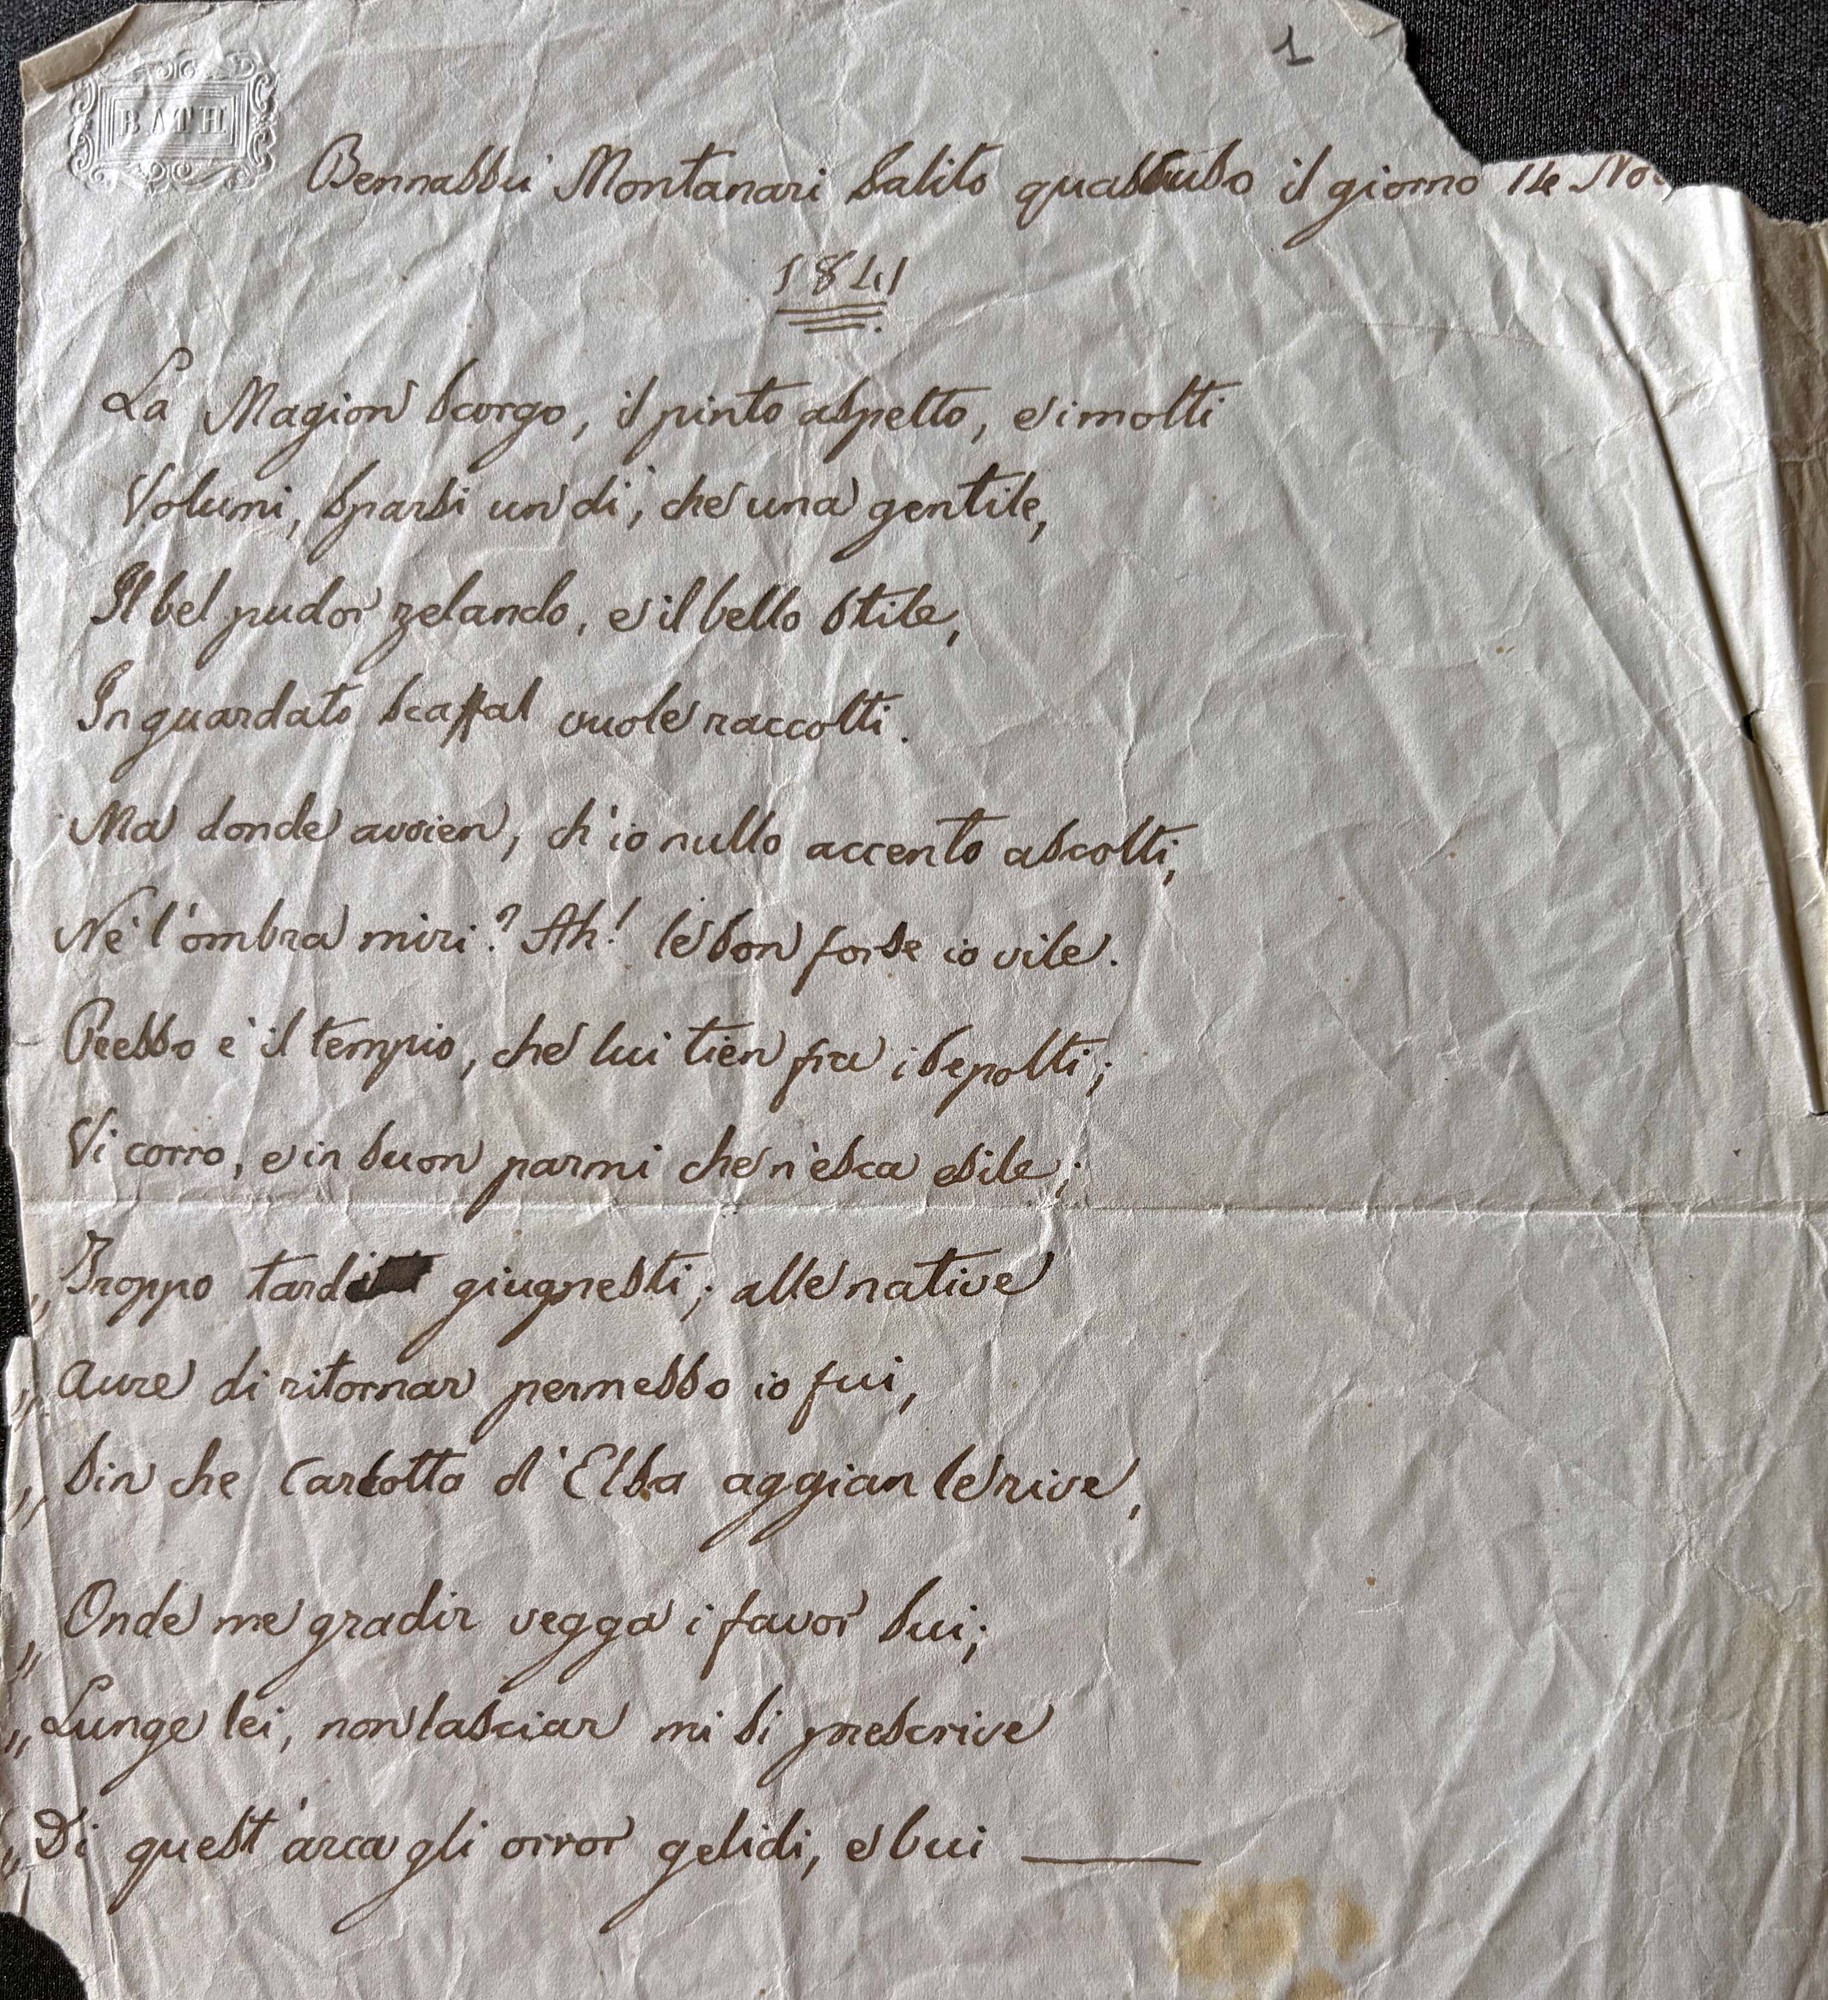 BATH
1
Bennassù Montanari salito quassuso il giorno 14 Nov
1841
La Magion scorgo, il pinto aspetto, e i molti
Volumi, sparsi un dì, che una gentile,
Il bel pudor zelando, e il bello stile,
In guardato scaffal vuole raccolti.
Ma donde avvien, ch'io nullo accento ascolti,
Nè l'ombra miri? Ah! le son forse io vile.
Presso è il tempio, che lui tien fra i sepolti;
Vi corro, e in suon parmi che n'esca esile;
„ Troppo tardi giugnesti; alle native
„ Aure di ritornar permesso io fui,
„ Sin che Carlotta d'Elba aggian le rive,
„ Onde me gradir vegga i favor sui;
„ Lunge lei, non lasciar mi si prescrive
„ Di quest'arca gli orror gelidi, e bui ——